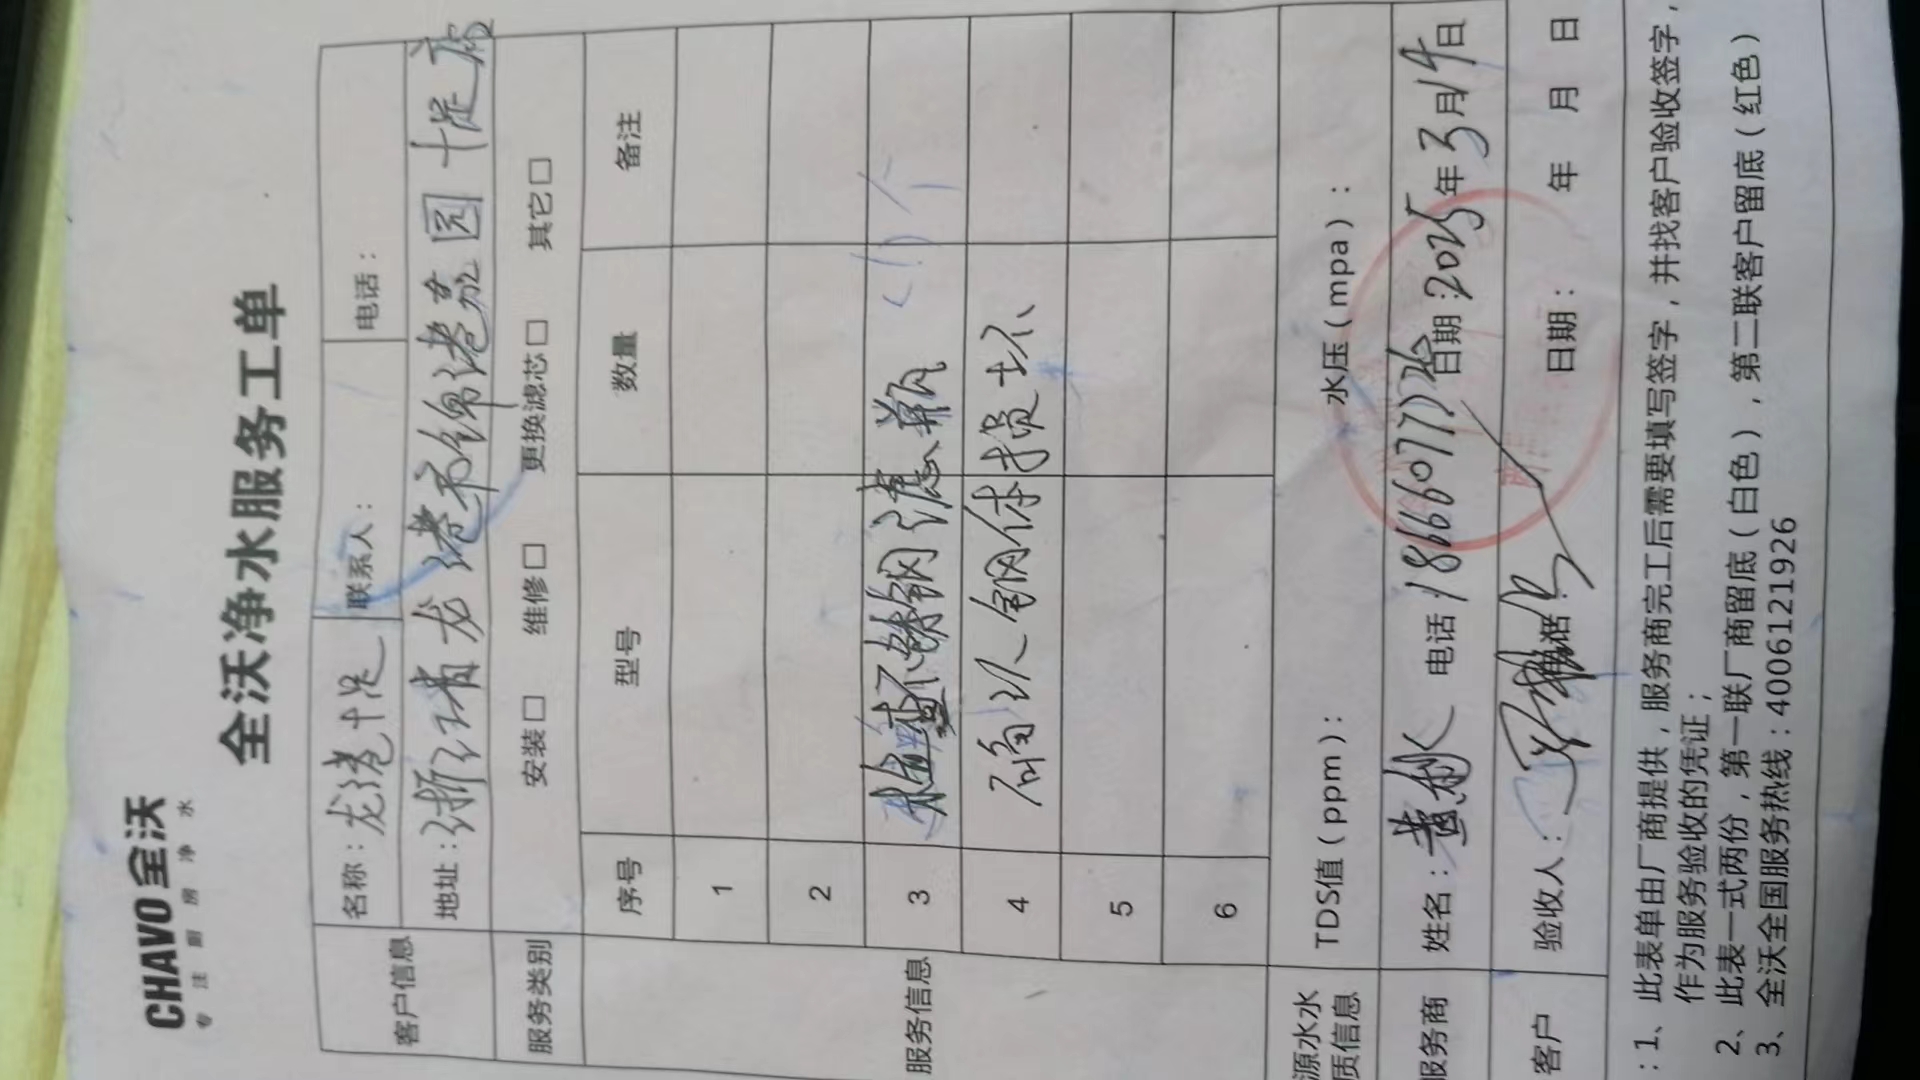 CHAVO 全沃
专 注 厨 房 净 水
全沃净水服务工单
客户信息 名称：龙港十足 联系人： 电话：
地址：浙江省龙港市锦港嘉园十足店
服务类别 安装□ 维修□ 更换滤芯□ 其它□
服务信息 序号 型号 数量 备注
1
2
3 不锈钢滤瓶 (1)个
4 确认钢体损坏
5
6
源水水质信息 TDS值（ppm）： 水压（mpa）：
服务商 姓名：黄 电话：日期：2025年3月14日
客户 验收人： 日期： 年 月 日
：1、此表单由厂商提供，服务商完工后需要填写签字，并找客户验收签字，
作为服务验收的凭证；
2、此表一式两份，第一联厂商留底（白色），第二联客户留底（红色）
3、全沃全国服务热线：4006121926